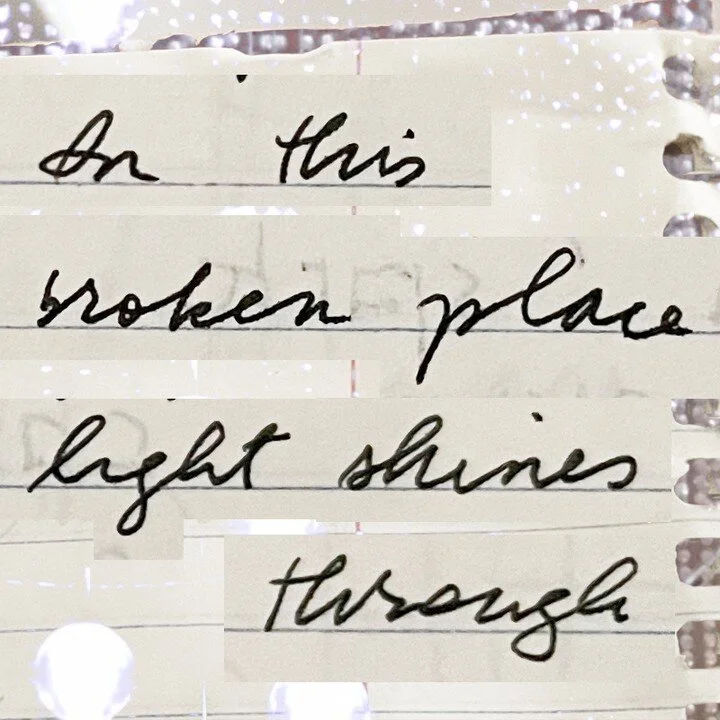 In this
broken place
light shines
through